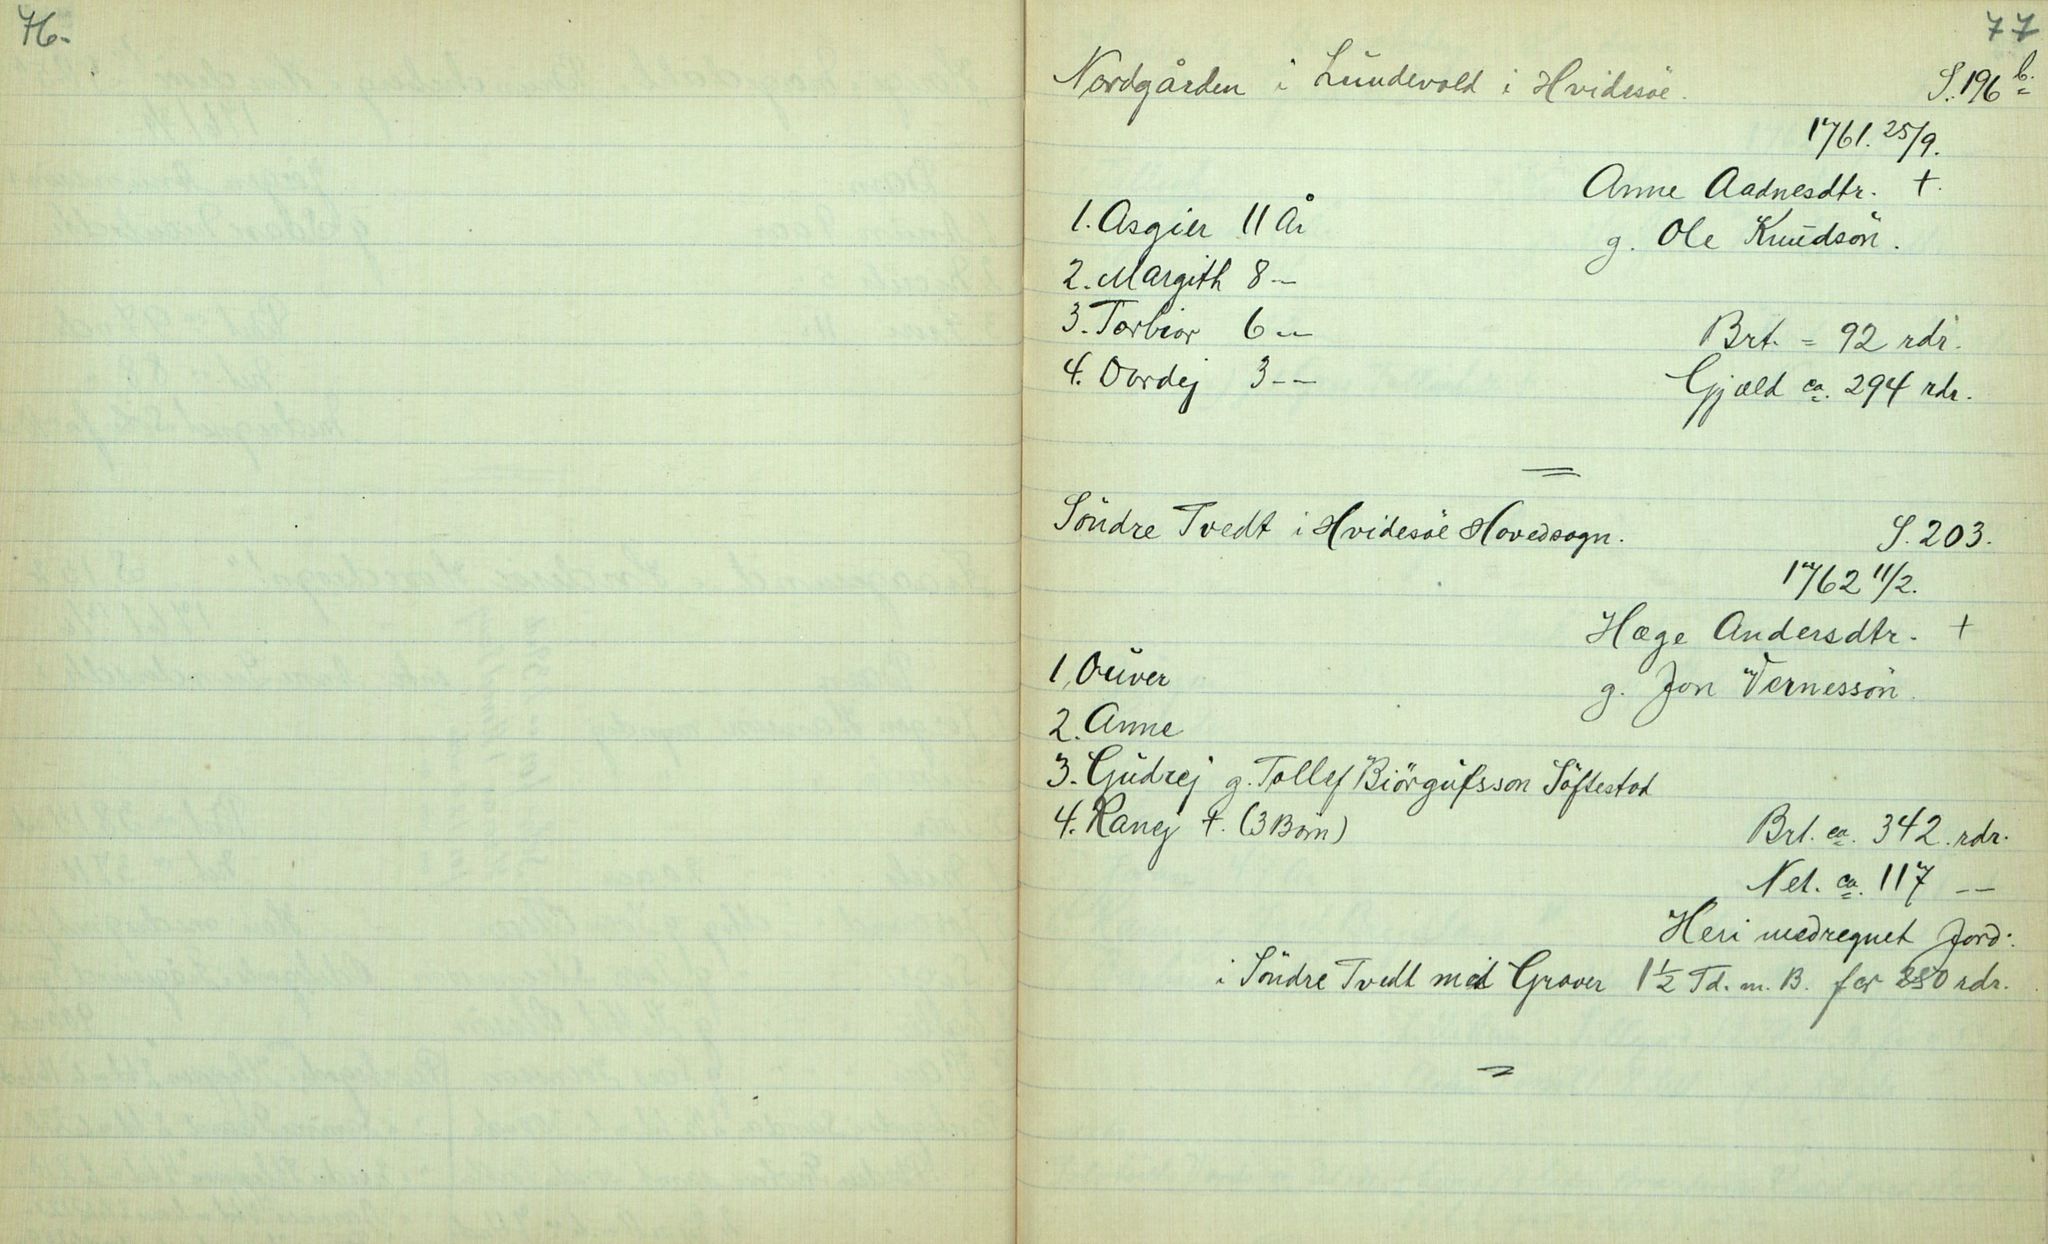 76.
77
Nordgården i Lundevald i Hvidesöe.
S. 196 b.
1761. 25/9.
Anne Aadnesdtr. +.
g. Ole Knudsön.
1. Asgier 11 År
2. Margith 8 --
3. Torbior 6 --
4. Oordej 3 --
Brt. = 92 rdr.
Gjæld ca. 294 rdr.
Söndre Tvedt i Hvidesöe Hovedsogn.
S. 203.
1762 11/2.
Hæge Andersdtr. +
g. Jon Vernessön.
1. Ouver
2. Anne
3. Gudrej g. Tollef Biörgufsson Söftestad
4. Ranej +. (3 Børn)
Brt. ca. 342. rdr.
Net. ca. 117 --
Heri medregnet Jord:
i Söndre Tvedt med Graver 1½ Td. m. B. for 280 rdr.